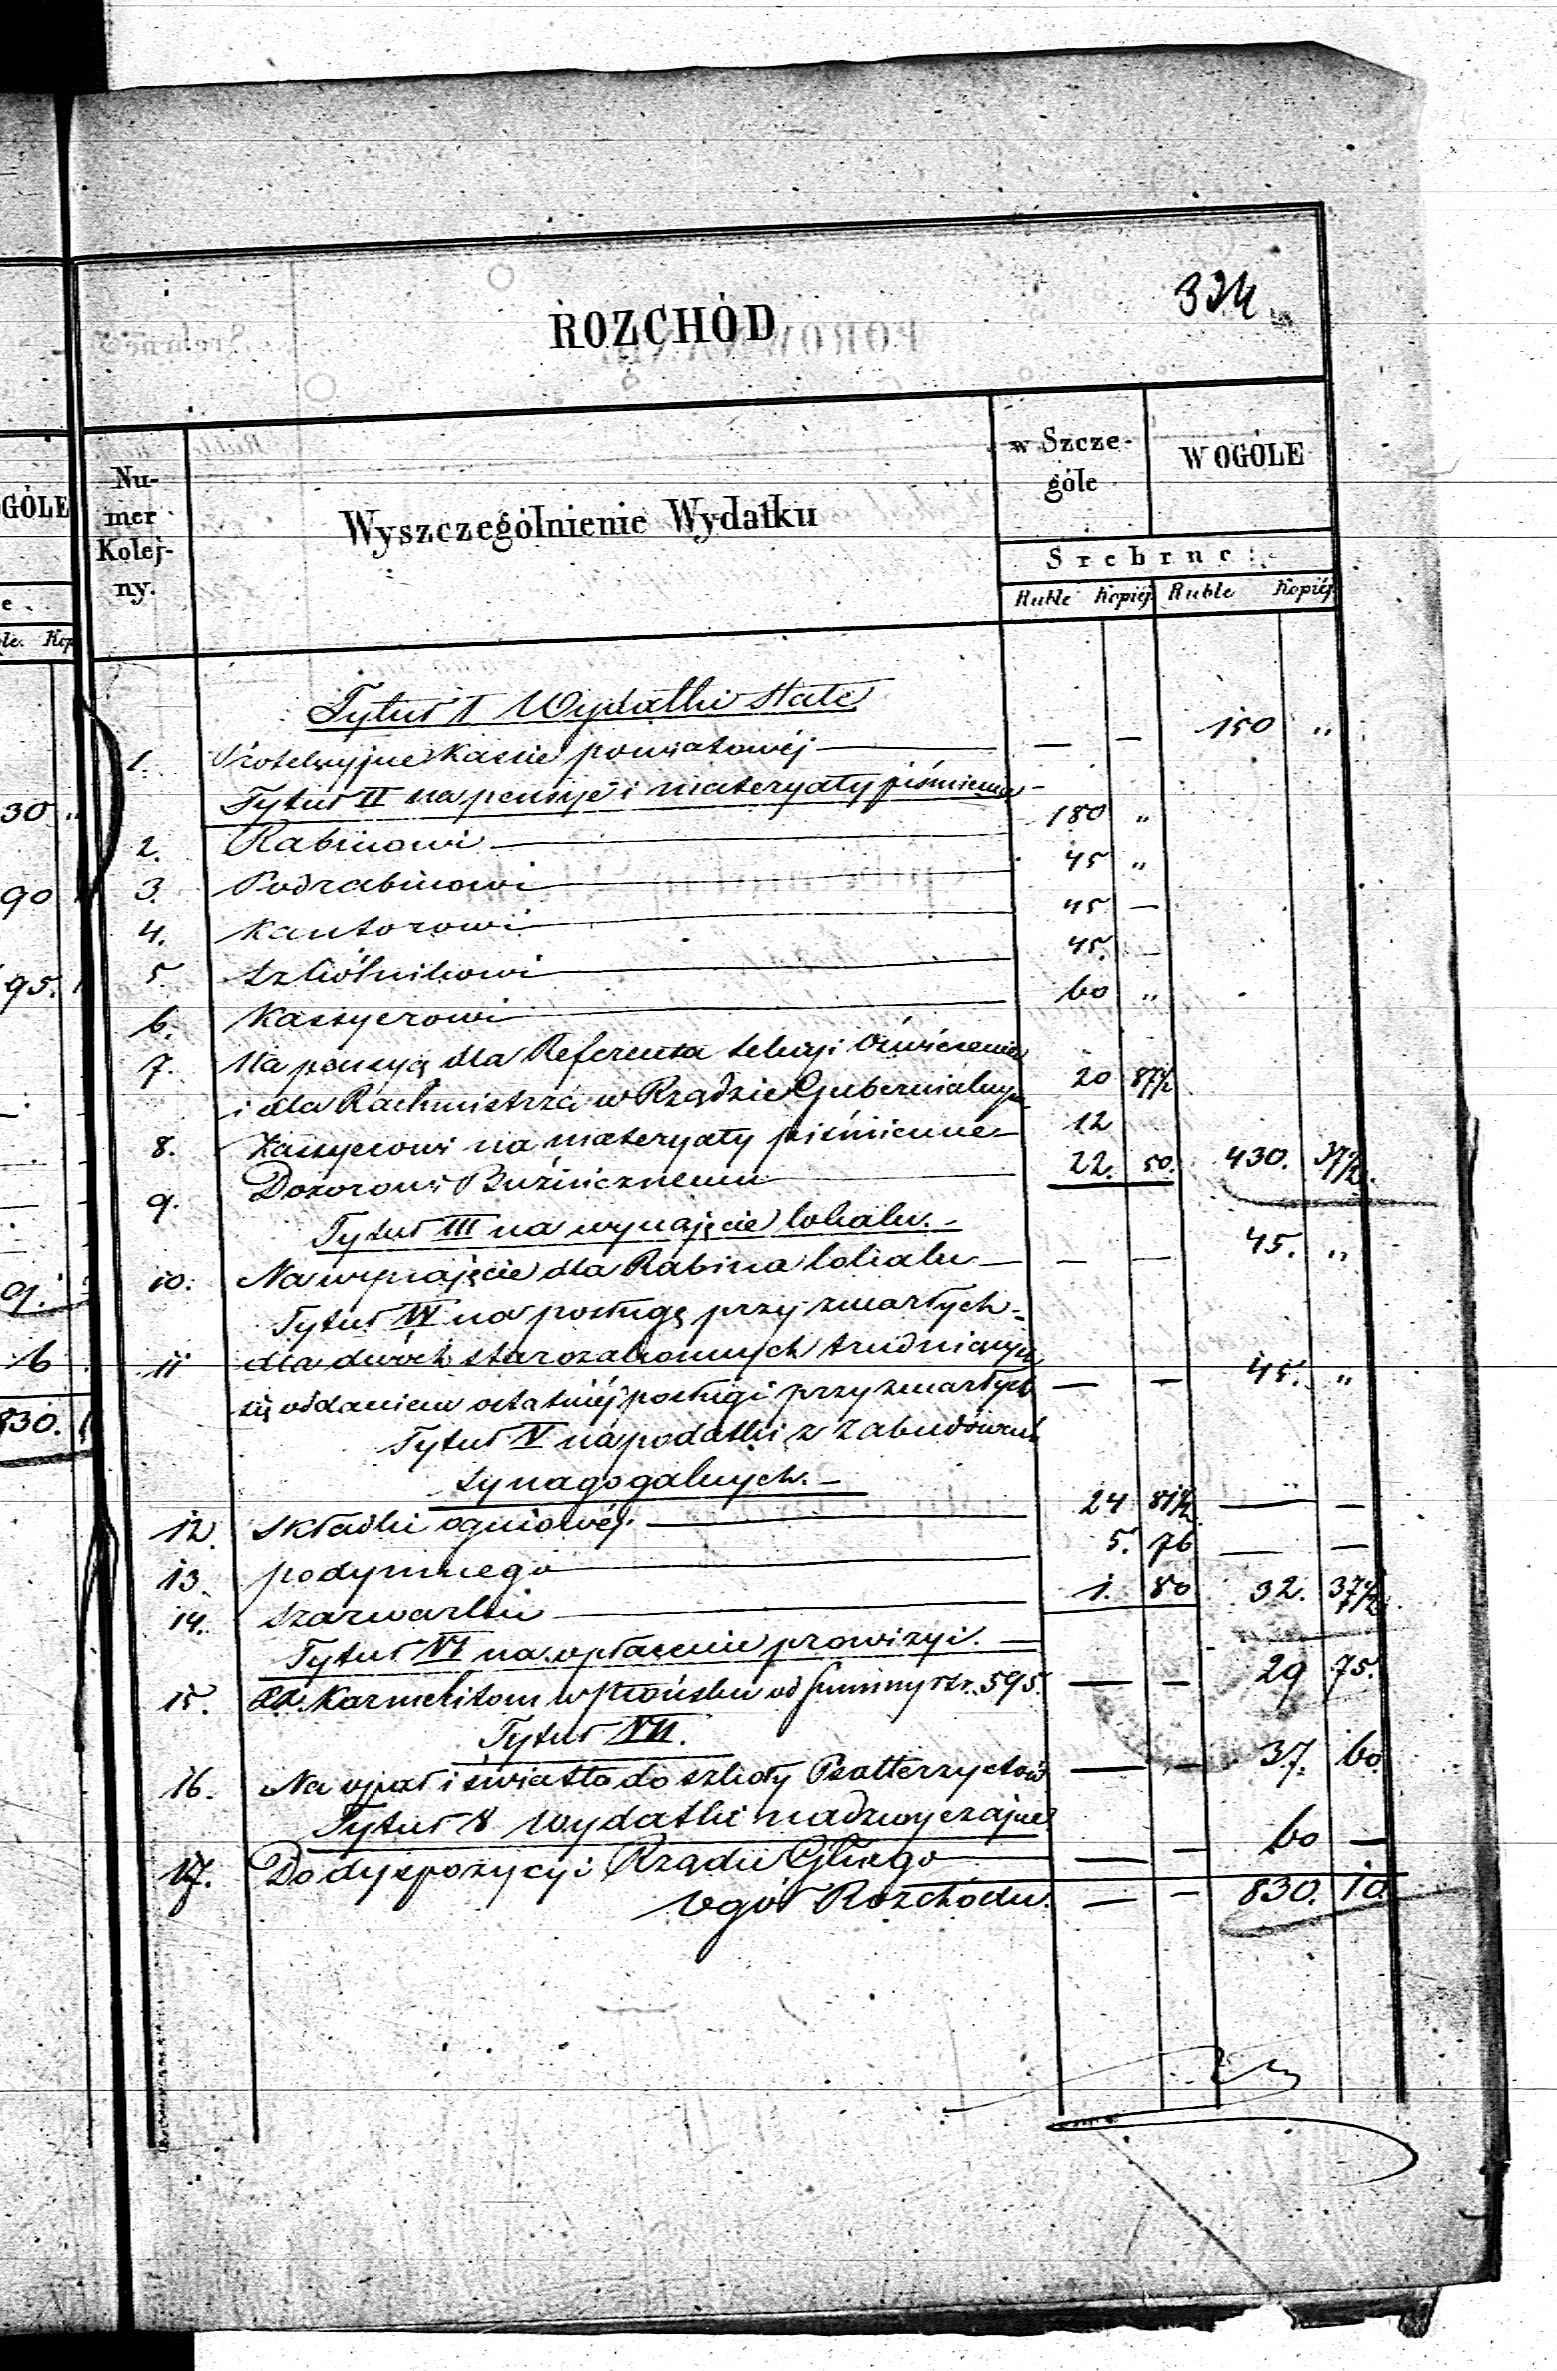 324
ROZCHÓD
Nu-
mer
Kolej-
ny.
Wyszczególnienie Wydatku
w Szcze-
góle
W OGÓLE
Srebrne
Ruble Kopiéj. Ruble Kopiéj.
GÓLE
e
Kop
Tytuł I Wydatki stałe
1. Protekcyjne Kassie powiatowéj — — 150 "
Tytuł II na pensye i materyały piśmienne
2. Rabinowi 180 "
3. Podrabinowi 45 "
4. Kantorowi 45 —
5. Szkólnikowi 45. —
6. Kassyerowi 60 "
7. Na pensyą dla Referenta Sekcyi Oświecenia
i dla Rachmistrza w Rządzie Gubernialnym 20 87½
8. Kassyerowi na materyały piśmienne 12
9. Dozorowi Bużnicznemu 22. 50. 430. 37½.
Tytuł III na wynajęcie lokalu.
10. Na wynajęcie dla Rabina lokalu — — 45. "
Tytuł IV na posługę przy zmarłych
11 dla dwóch starozakonnych trudniących
się oddaniem ostatniéj posługi przy zmarłych — — 45. "
Tytuł V na podatki z Zabudowań
synagogalnych.
12. Składki ogniowéj 24 81½ — —
13. podymnego 5. 76 — —
14. Szarwarku 1. 80 32. 37½
Tytuł VI na opłacenie prowizyi.
15. XX. Karmelitom w Płońsku od Summy rsr. 595. — — 29 75.
Tytuł VII.
16. Na opał i światło do szkoły Psałterzystów — — 37. 60.
Tytuł 8 Wydatki nadzwyczajne
17. Do dyspozycyi Rządu Głłnego — — 60 —
Ogół Rozchodu. — — 830. 10.
30 "
90
95.
9.
16
830.